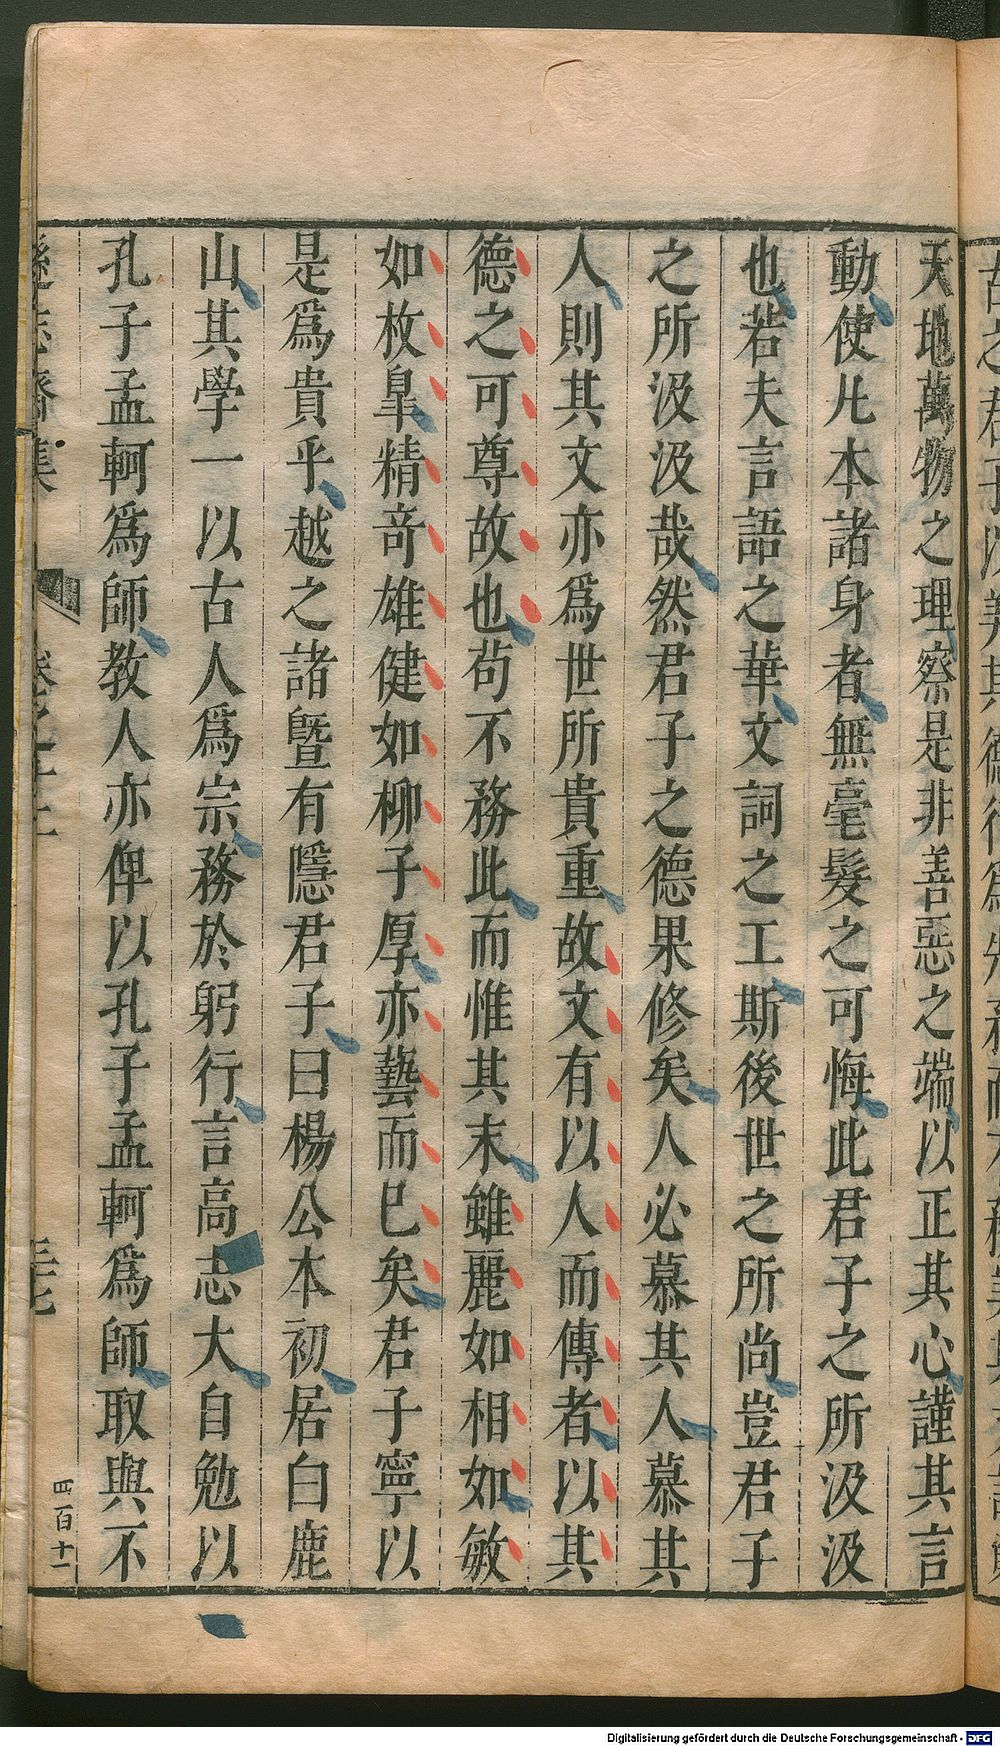 天地萬物之理察是非善惡之端以正其心謹其言
動使凡本諸身者無毫髮之可悔此君子之所汲汲
也若夫言語之華文詞之工斯後世之所尚豈君子
之所汲汲哉然君子之德果修矣人必慕其人慕其
人則其文亦爲世所貴重故文有以人而傳者以其
德之可尊故也苟不務此而惟其末雖麗如相如敏
如枚臯精竒雄健如柳子厚亦藝而已矣君子寧以
是爲貴乎越之諸曁有隱君子曰楊公本初居白鹿
山其學一以古人爲宗務於躬行言高志大自勉以
孔子孟軻爲師教人亦俾以孔子孟軻爲師取與不
遜志齋集
卷之十二
三七
四百十一
Digitalisierung gefördert durch die Deutsche Forschungsgemeinschaft - DFG